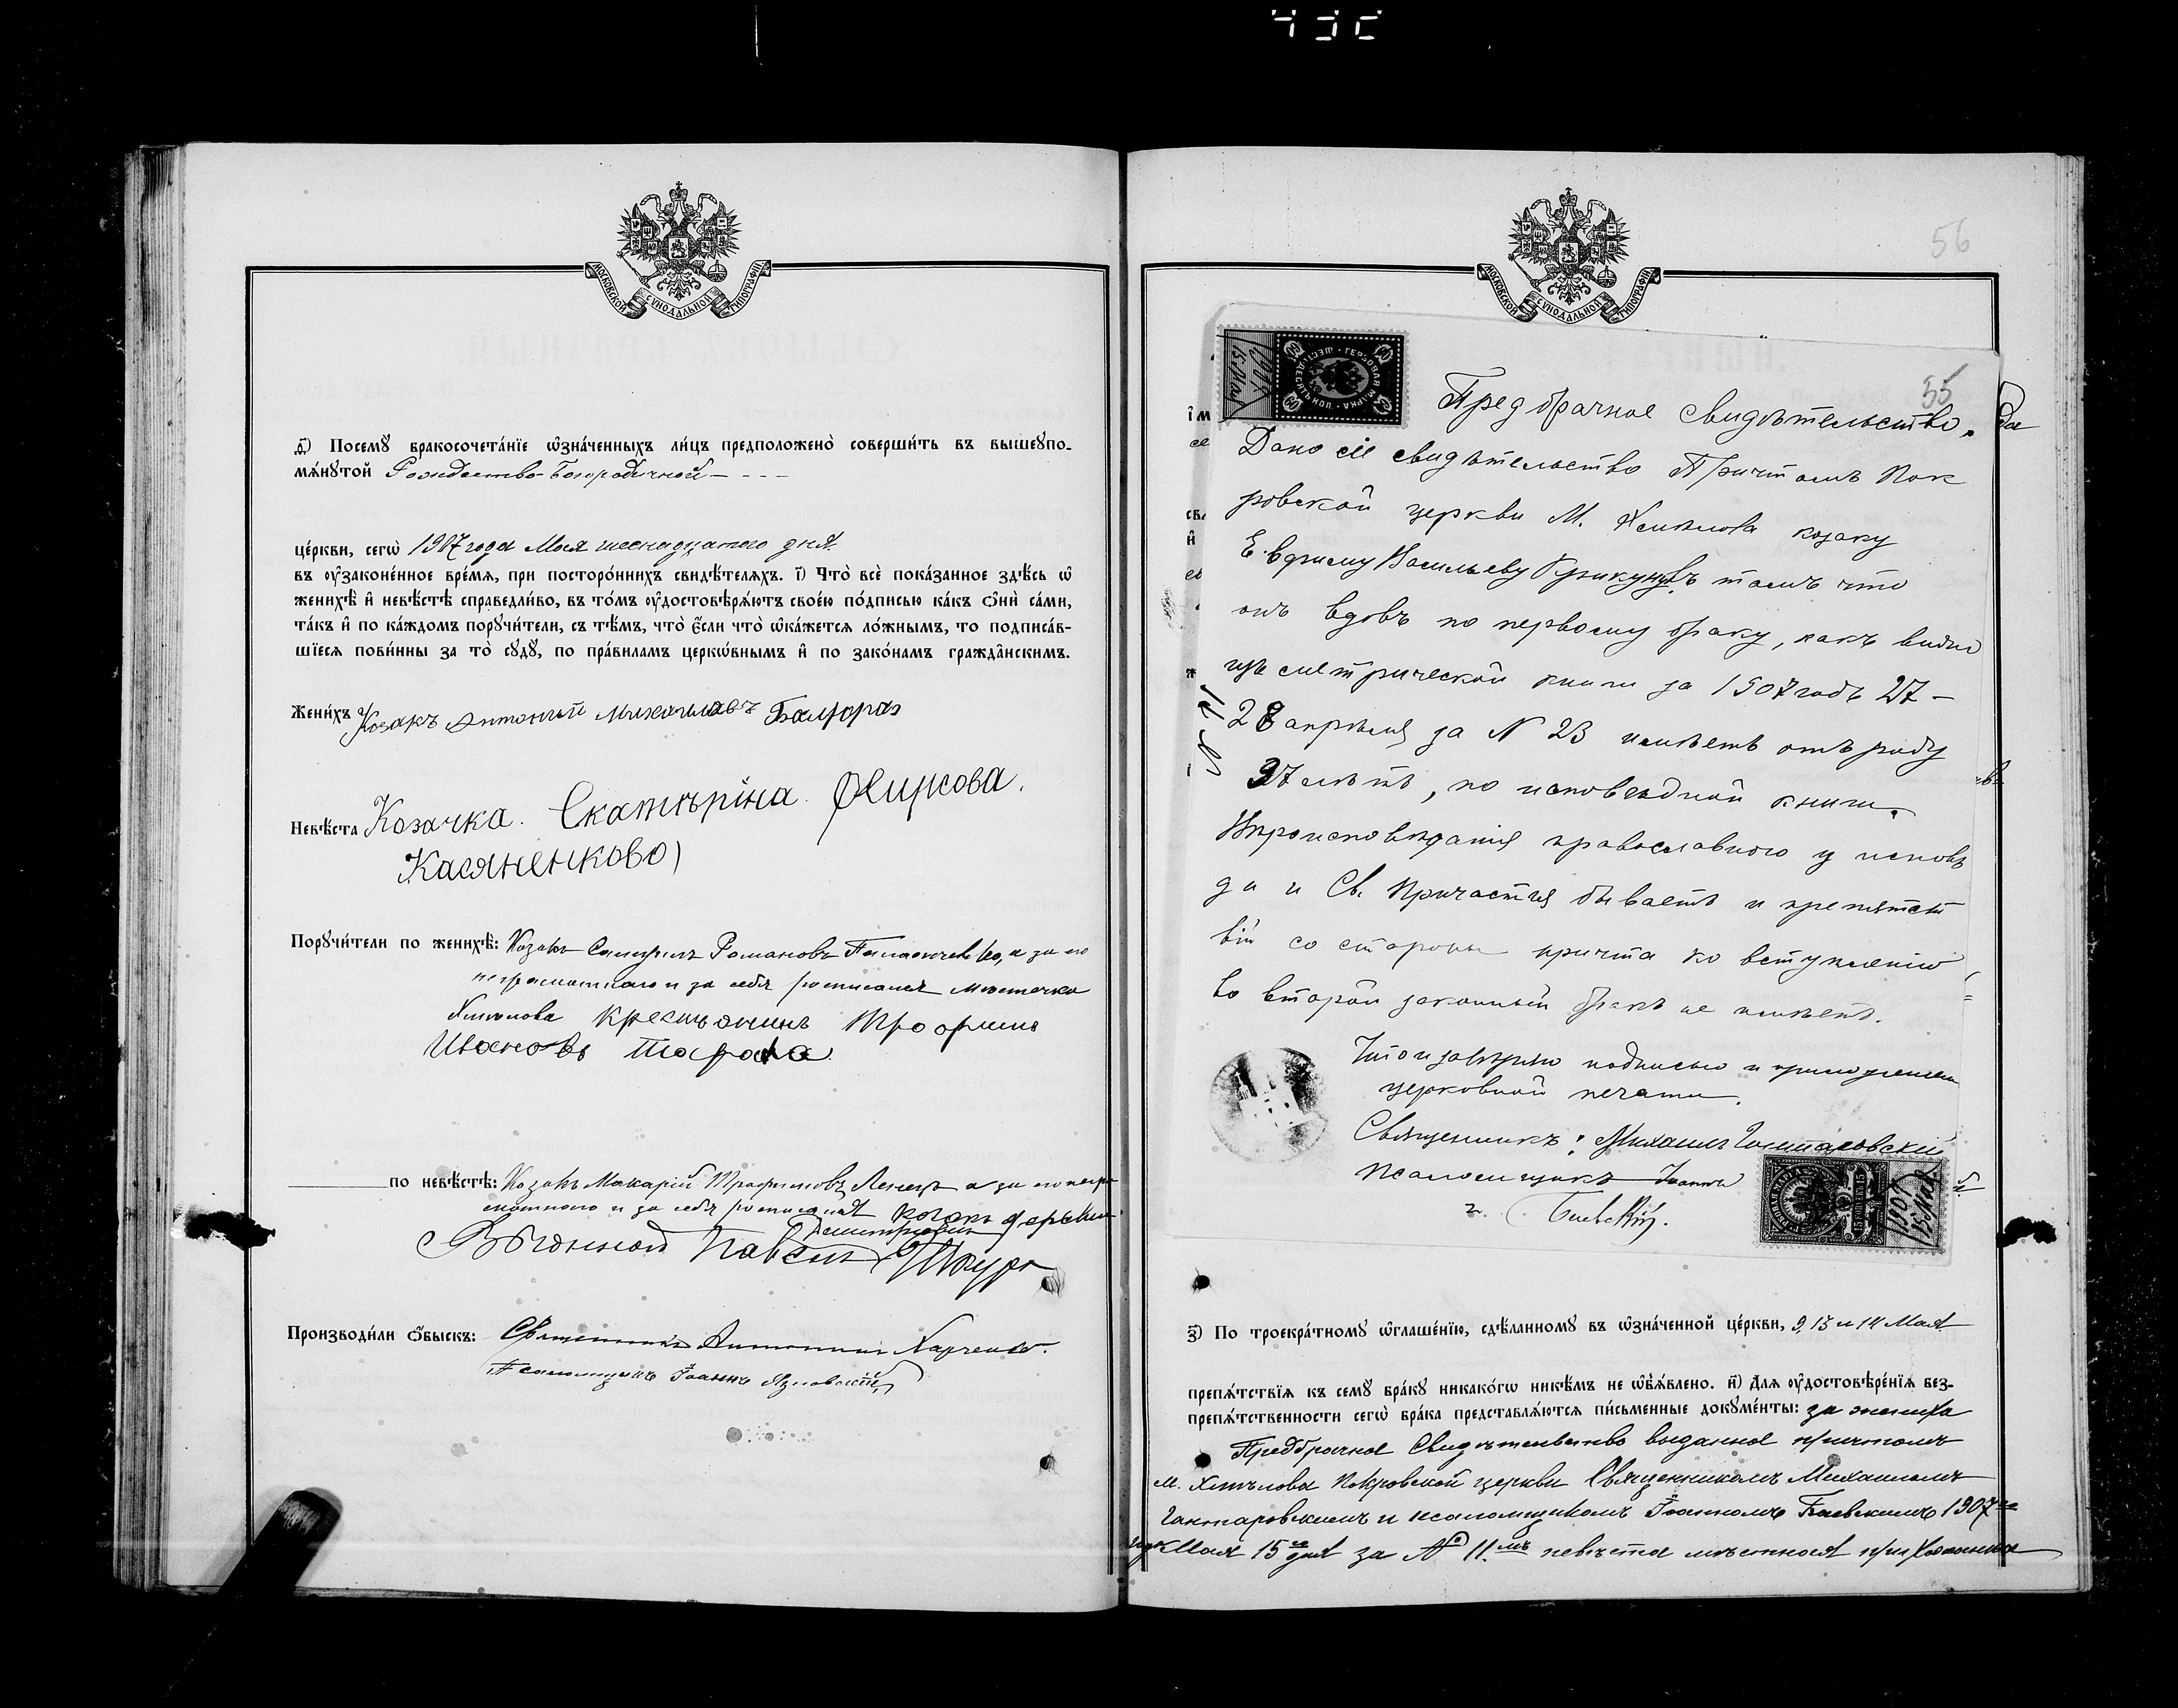 МОСКОВСКОЙ СѴНОДАЛЬНОЙ ТИПОГРАФІИ
ѳ҃) Посемꙋ̀ бракосочета́нїе ѡ҆зна́ченныхъ ли́цъ предположено̀ соверши́ть въ вышеꙋпо-
мѧ́нꙋтой Рождество-Богородичной - - - -
це́ркви, сегѡ̀ 1907 года Мая шеснадцатого дня
въ ᲂу҆зако́ненное вре́мѧ, при посторо́ннихъ свидѣ́телѧхъ. і҃) Что̀ всѐ пока́занное здѣ́сь ѡ҆
женихѣ̀ и҆ невѣ́стѣ справедли́во, въ то́мъ ᲂу҆достовѣрѧ́ютъ свое́ю по́дписью ка́къ ѻ҆нѝ са́ми,
та́къ и҆ по ка́ждомъ порꙋчи́тели, съ тѣ́мъ, что̀ є҆́сли что̀ ѡ҆ка́жетсѧ ло́жнымъ, то подписа́в-
шїесѧ пови́нны за то̀ сꙋдꙋ̀, по пра́виламъ церко́внымъ и҆ по зако́намъ гражда́нскимъ.
Жени́хъ Козакъ Антоний Михаиловъ
Невѣ́ста Козачка. Екатѣріна Фирсова.
Касяненкова
Порꙋчи́тели по женихѣ̀: Козакъ Романовъ а за его
неграмотнаго и за себя росписался мѣстечка
Хмѣлова крестьянинъ Трофимъ
Ивановъ
по невѣ́стѣ: Козакъ Макарій Трофимовъ а за его негра
мотного и за себя росписался козакъ
Дмитріевич
Выгонной Павелъ
Производи́ли ѻ҆́быскъ: Священникъ Антоній Харченко.
Псаломщикъ Іоаннъ Язловскій
МОСКОВСКОЙ СѴНОДАЛЬНОЙ ТИПОГРАФІИ
56
55
ГЕРБОВАЯ МАРКА ШЕСТЬДЕСЯТЪ КОП.
15 Мая
Предбрачное свидѣтельство.
Дано сіе свидѣтельство Причтомъ Пок
ровской церкви М. Хмѣлова козаку
Евфиму Васильеву Крикуну въ томъ что
онъ вдовъ по первому браку, какъ видно
изъ метрической книги за 1907 годъ 27-
28 апрѣля за N 23 имѣетъ отъ роду
37 лѣтъ, по исповѣдной книги.
Вѣроисповѣданія православного у исповѣ
ди и Св. Причастія бываетъ и препятст
вій со стороны причта ко вступленію
во второй законный бракъ не имѣетъ.
Что и завѣряю подписью и приложеніем
церковной печати.
Священникъ: Михаилъ Гонтаровскій
Псаломщикъ Іоаннъ
Баевскій.
1907
15 Мая
з҃) По троекра́тномꙋ ѡ҆глаше́нїю, сдѣ́ланномꙋ въ ѡ҆зна́ченной це́ркви, 9, 13 и 14 Мая
препѧ́тствїѧ къ семꙋ̀ бра́кꙋ никако́гѡ никѣ́мъ не ѡ҆б̾ѧ́влено. и҃) Длѧ ᲂу҆достовѣре́нїѧ без-
препѧ́тственности сегѡ̀ бра́ка представлѧ́ютсѧ пи́сьменные докꙋме́нты: за жениха
Предбрачное Свидѣтельство выданное причтомъ
м. Хмѣлова Покровской церкви Священникомъ Михаиломъ
Гонтаровскимъ и псаломщикомъ Іоанномъ Баевскимъ 1907 го
года Мая 15 го дня за № 11.мъ невѣста мѣстная прихожанка